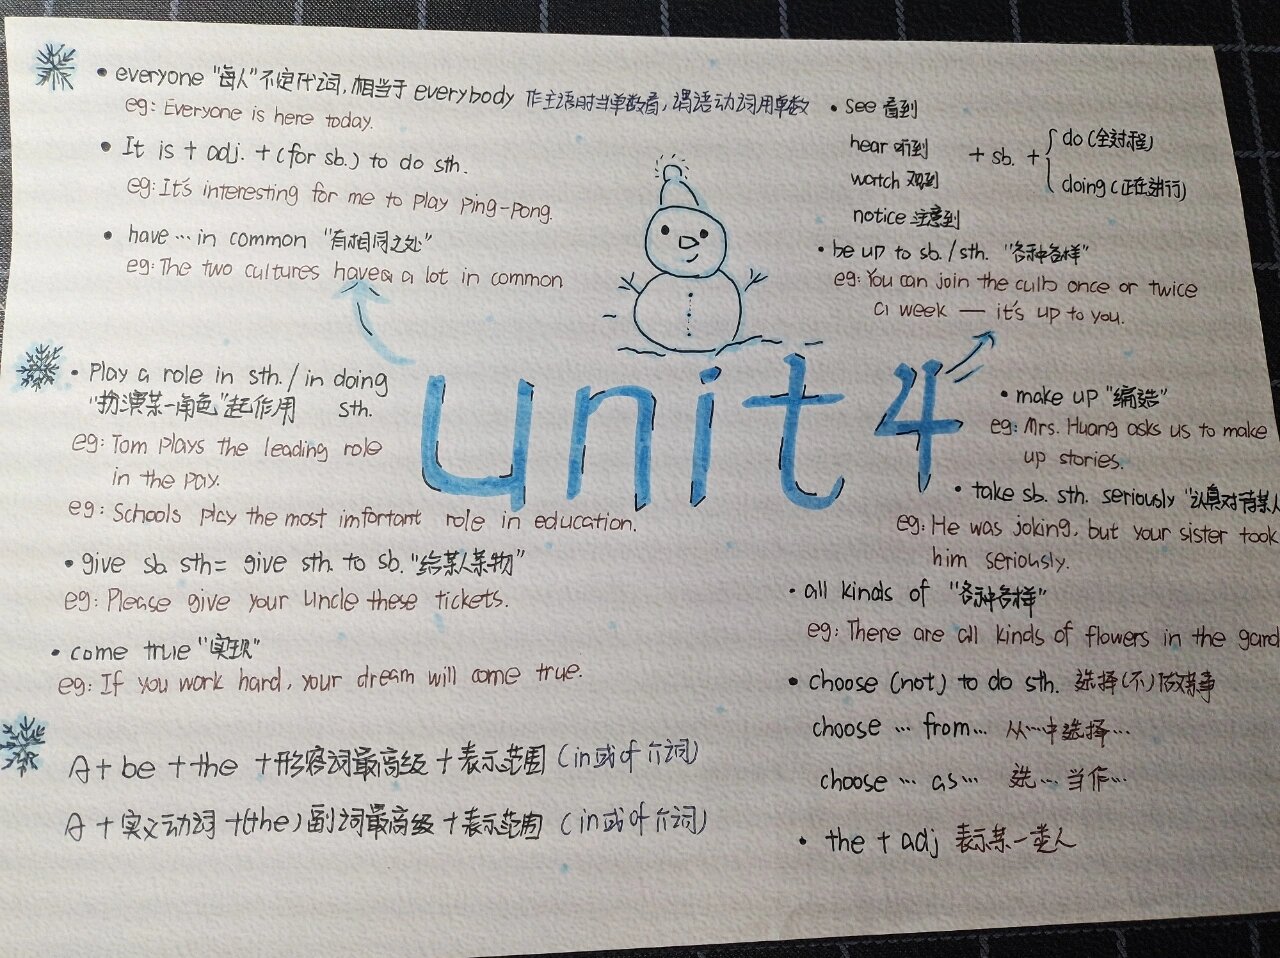 • everyone "每人"不定代词,相当于 everybody 作主语时当单数看,谓语动词用单数
eg: Everyone is here today.
• It is + adj. + (for sb.) to do sth.
eg: It's interesting for me to play Ping-Pong.
• have … in common "有相同之处"
eg: The two cultures have a a lot in common
• Play a role in sth. / in doing
"扮演某一角色"起作用 sth.
eg: Tom plays the leading role
in the pay.
eg: Schools play the most imfortant role in education.
• give sb. sth = give sth. to sb. "给某人某物"
eg: Please give your uncle these tickets.
• come true "实现"
eg: If you work hard, your dream will come true.
A + be + the + 形容词最高级 + 表示范围 (in或of介词)
A + 实义动词 + (the) 副词最高级 + 表示范围 (in或of介词)
unit 4
• see 看到
hear 听到 + sb. + do (全过程)
watch 观到 doing (正在进行)
notice 注意到
• be up to sb. / sth. "各种各样"
eg: You can join the culb once or twice
a week — it's up to you.
• make up "编造"
eg: Mrs. Huang asks us to make
up stories.
• take sb. sth. seriously "认真对待某人
eg: He was joking, but your sister took
him seriously.
• all kinds of "各种各样"
eg: There are all kinds of flowers in the gard
• choose (not) to do sth. 选择(不)做某事
choose … from… 从…中选择…
choose … as… 选…当作…
• the + adj 表示某一类人